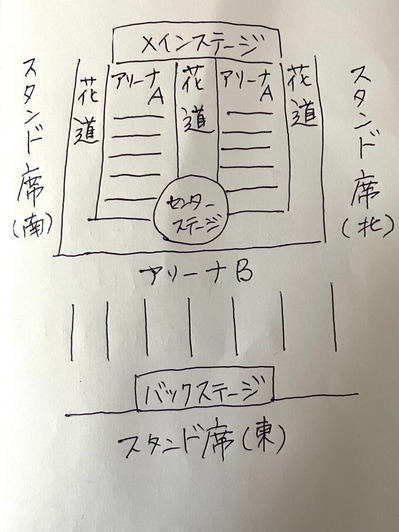 メインステージ
スタンド席(南)
花道
アリーナA
花道
アリーナA
花道
スタンド席(北)
センターステージ
アリーナB
バックステージ
スタンド席(東)